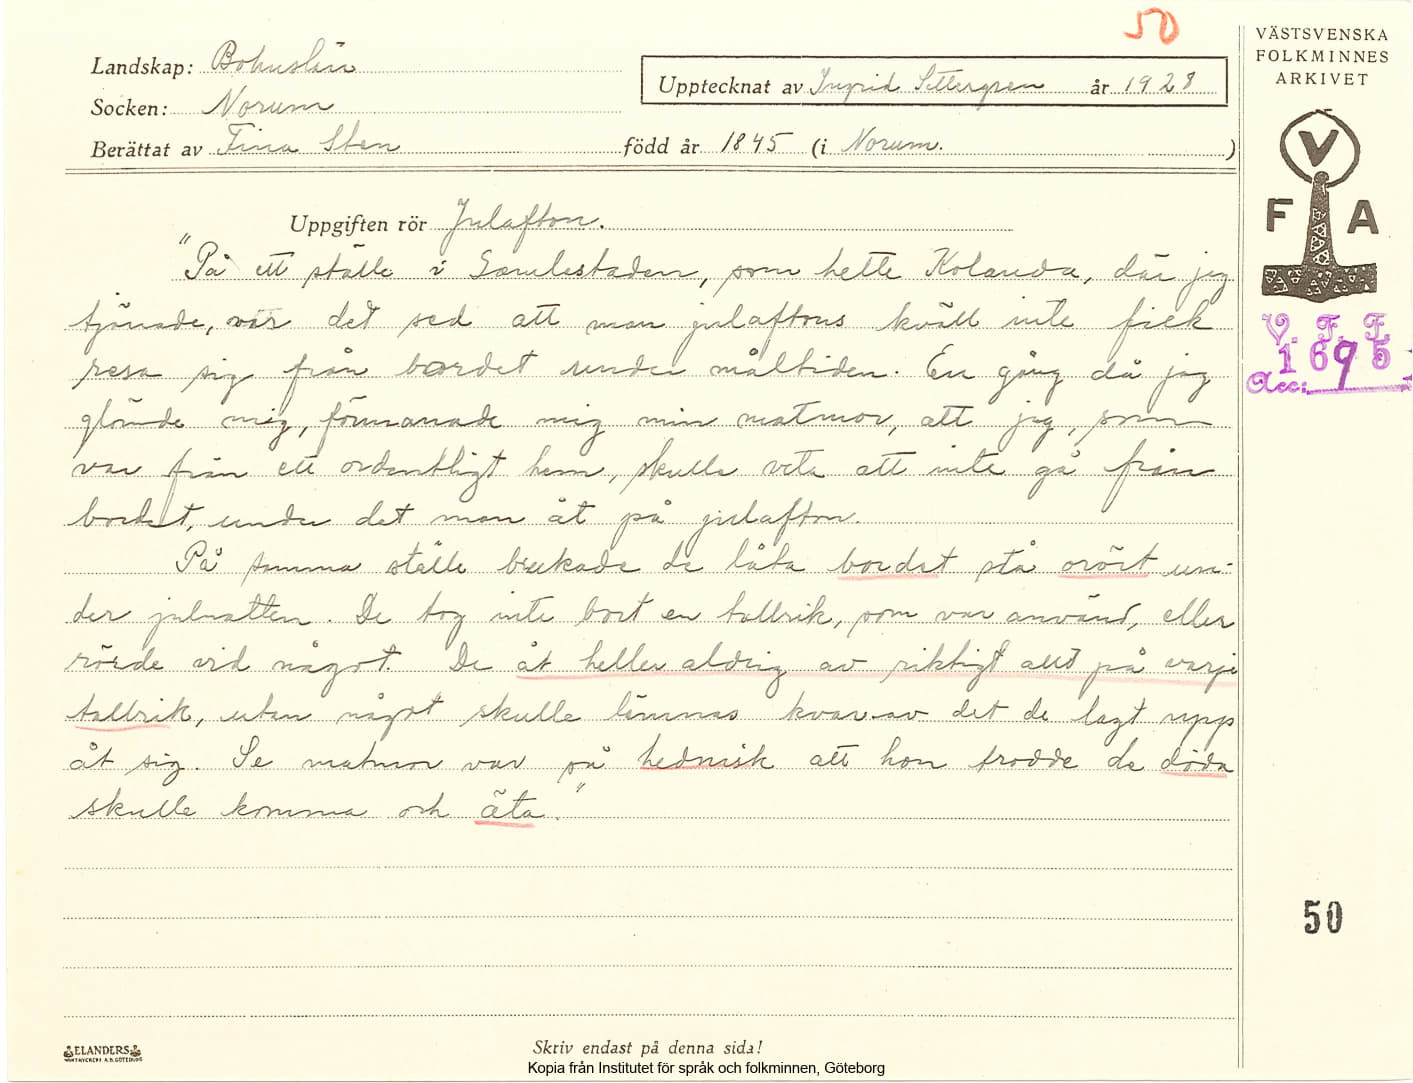 50
VÄSTSVENSKA
FOLKMINNES
ARKIVET
Landskap: Bohuslän
Upptecknat av Ingrid Settergren år 1928
Socken: Norum
Berättat av Fina Sten född år 1845 (i Norum.)
V
F A
Uppgiften rör Julafton.
"På ett ställe i Gamlestaden, som hette Kolanda, där jag
tjänade, var det sed att man julaftons kväll inte fick
resa sig från bordet under måltiden. En gång då jag
glömde mig, förmanade mig min matmor, att jag, som
var från ett ordentligt hem, skulle veta att inte gå från
bordet, under det man åt på julafton.
På samma ställe brukade de låta bordet stå orört un-
der julnatten. De tog inte bort en tallrik, som var använd, eller
rörde vid något. De åt heller aldrig av riktigt allt på varje
tallrik, utan något skulle lämnas kvar av det de lagt upp
åt sig. Se matmor var så hednisk att hon trodde de döda
skulle komma och äta."
V. F. F.
1695
Acc:
50
ELANDERS
Skriv endast på denna sida!
Kopia från Institutet för språk och folkminnen, Göteborg